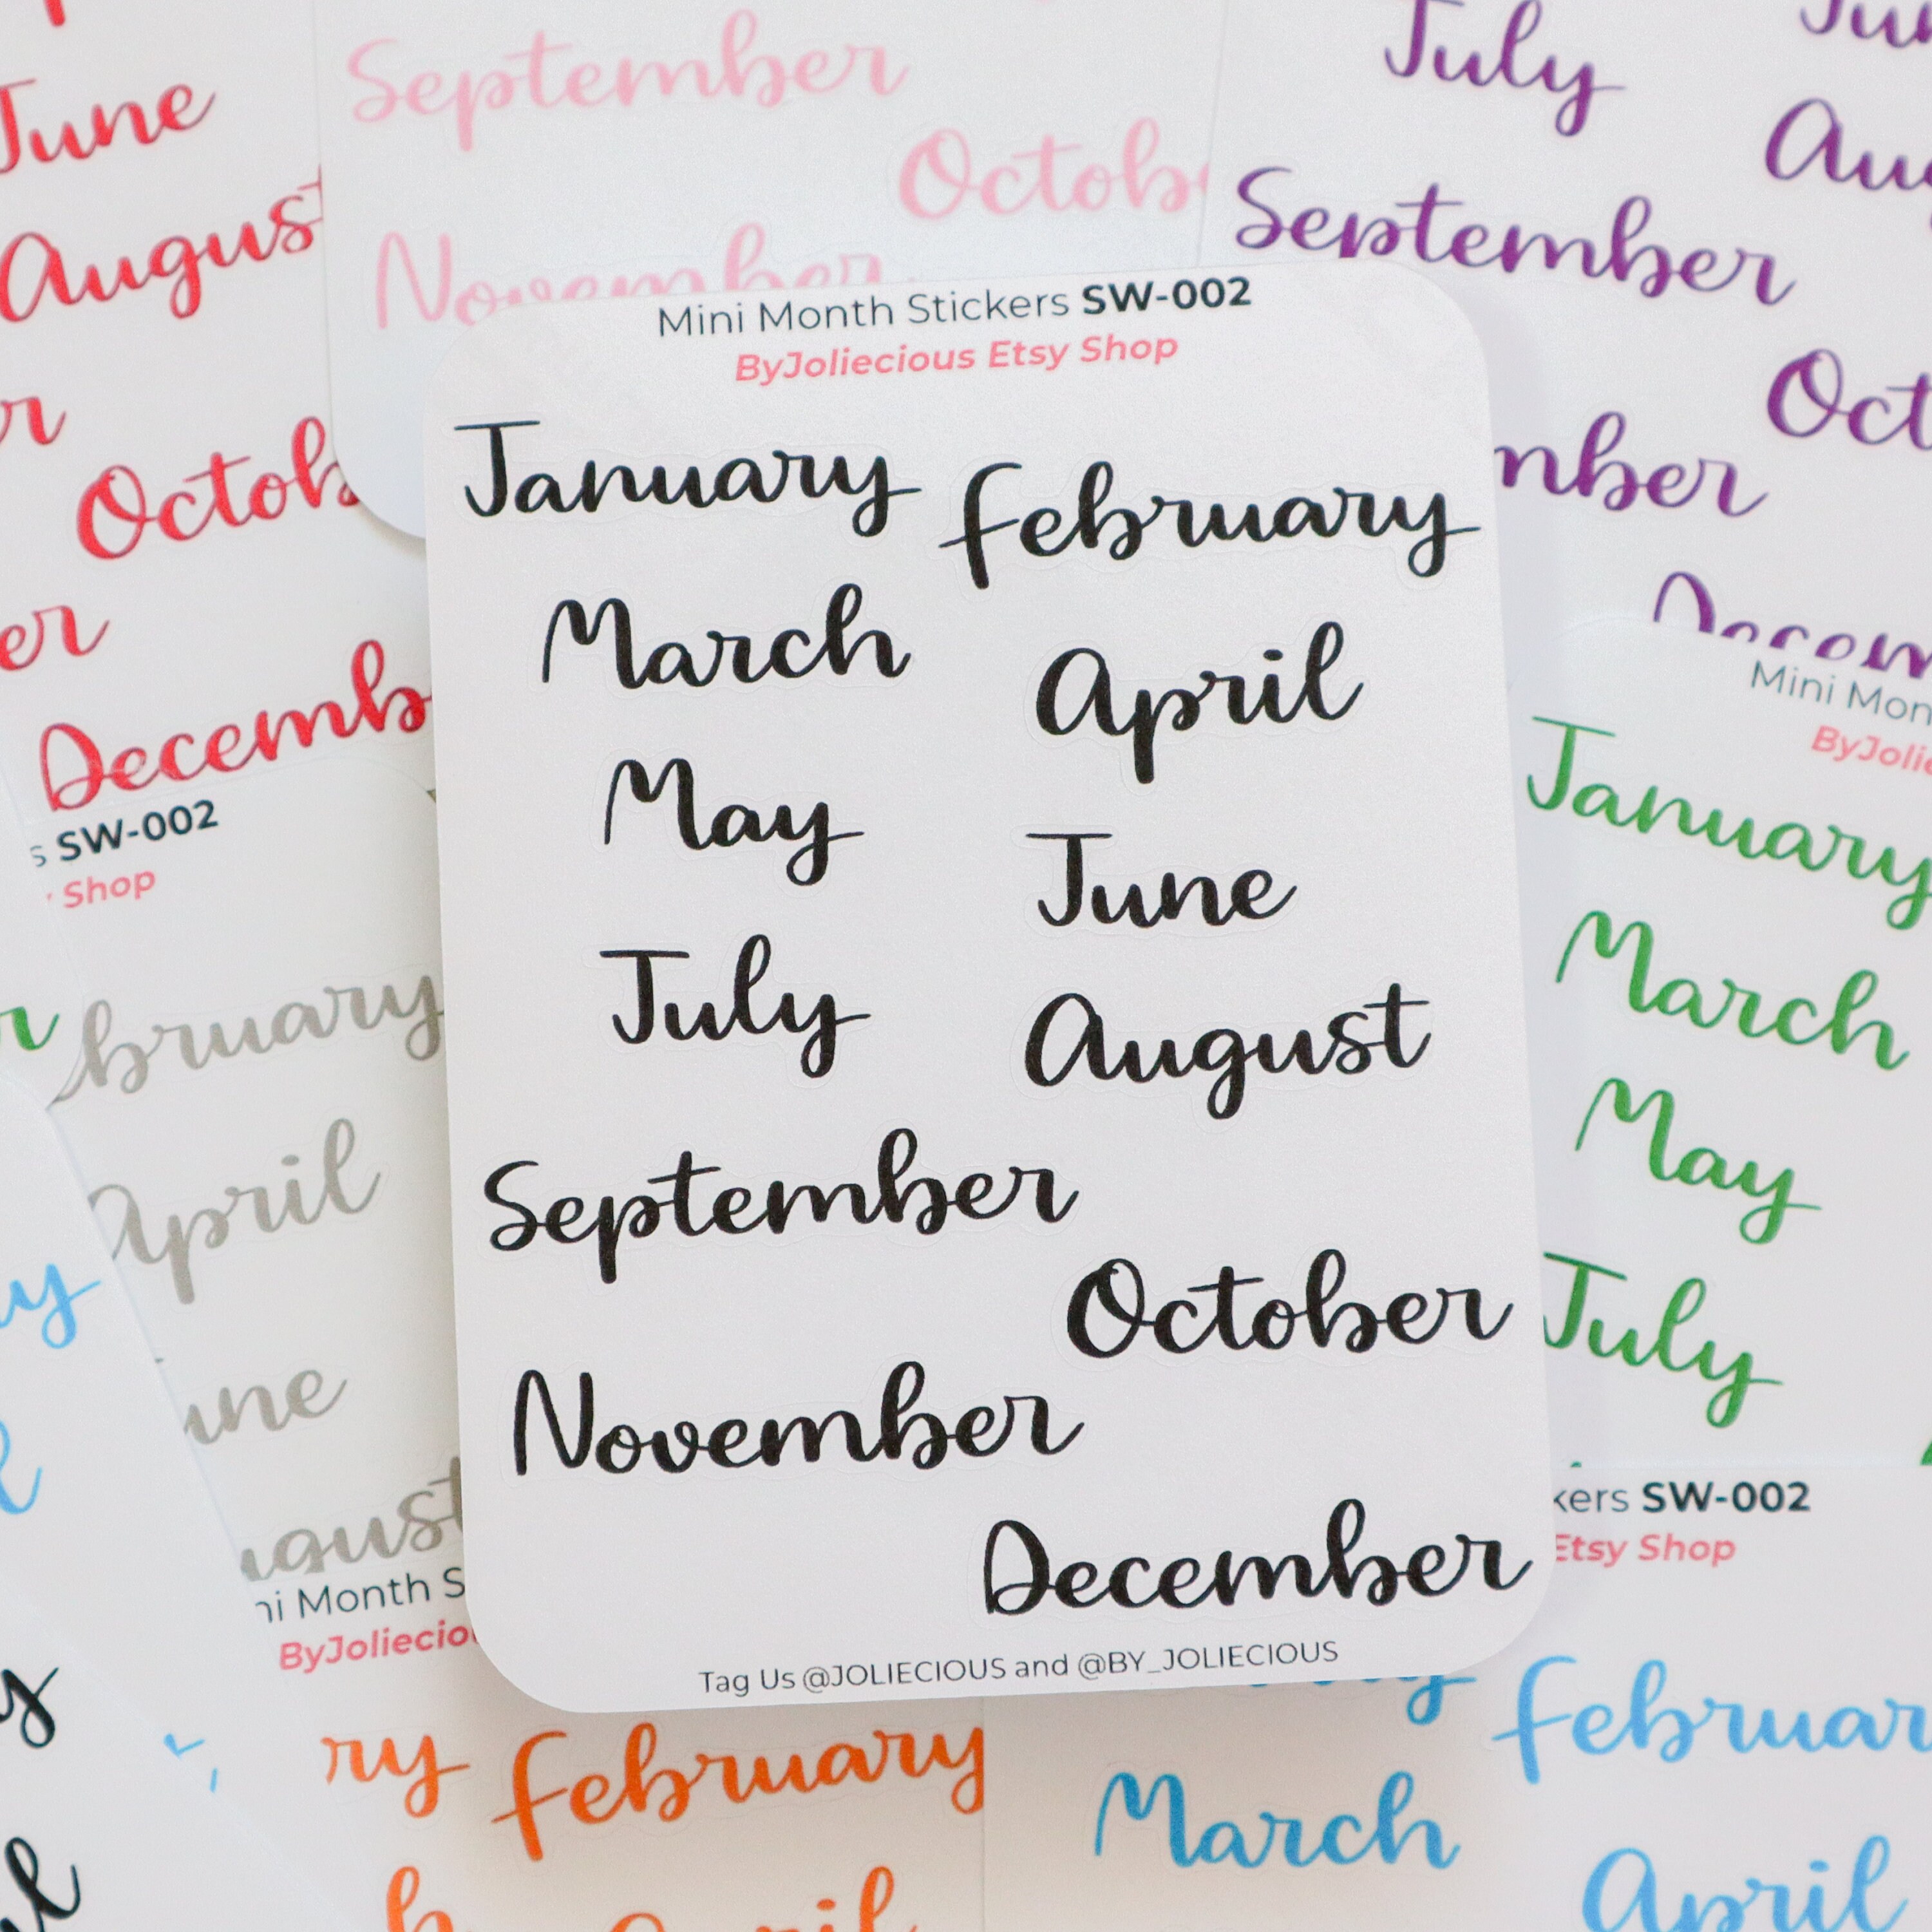 June
August
October
December
September
October
November
July
September
Mini Month Stickers SW-002
ByJoliecious Etsy Shop
January February
March April
May June
July August
September
October
November
December
Tag Us @JOLIECIOUS and @BY_JOLIECIOUS
SW-002
Shop
April
January
March
May
July
SW-002
Etsy Shop
February
February
March
April